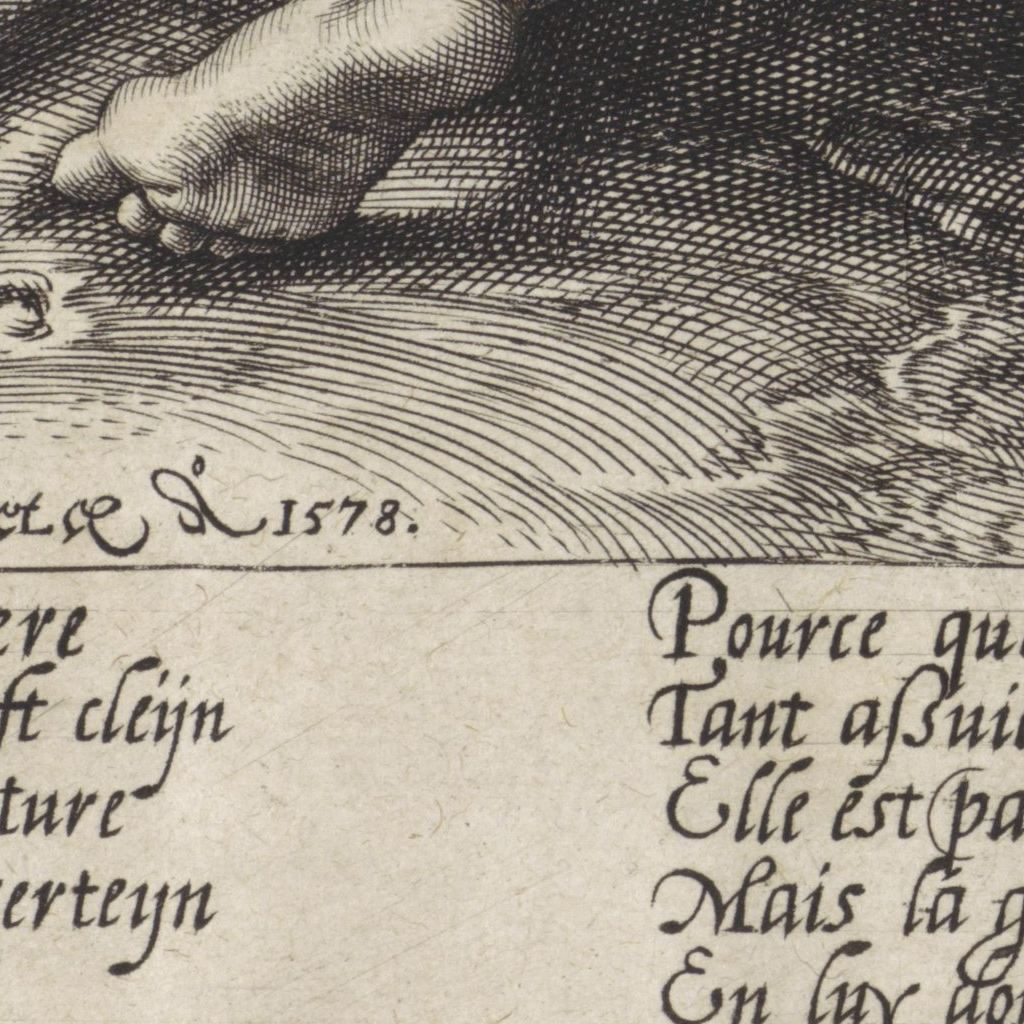 et œ Å 1578.
ere
ft cleijn
ture
erteijn
Pource qu
Tant aſsuie
Elle est pa
Mais la g
En luy don